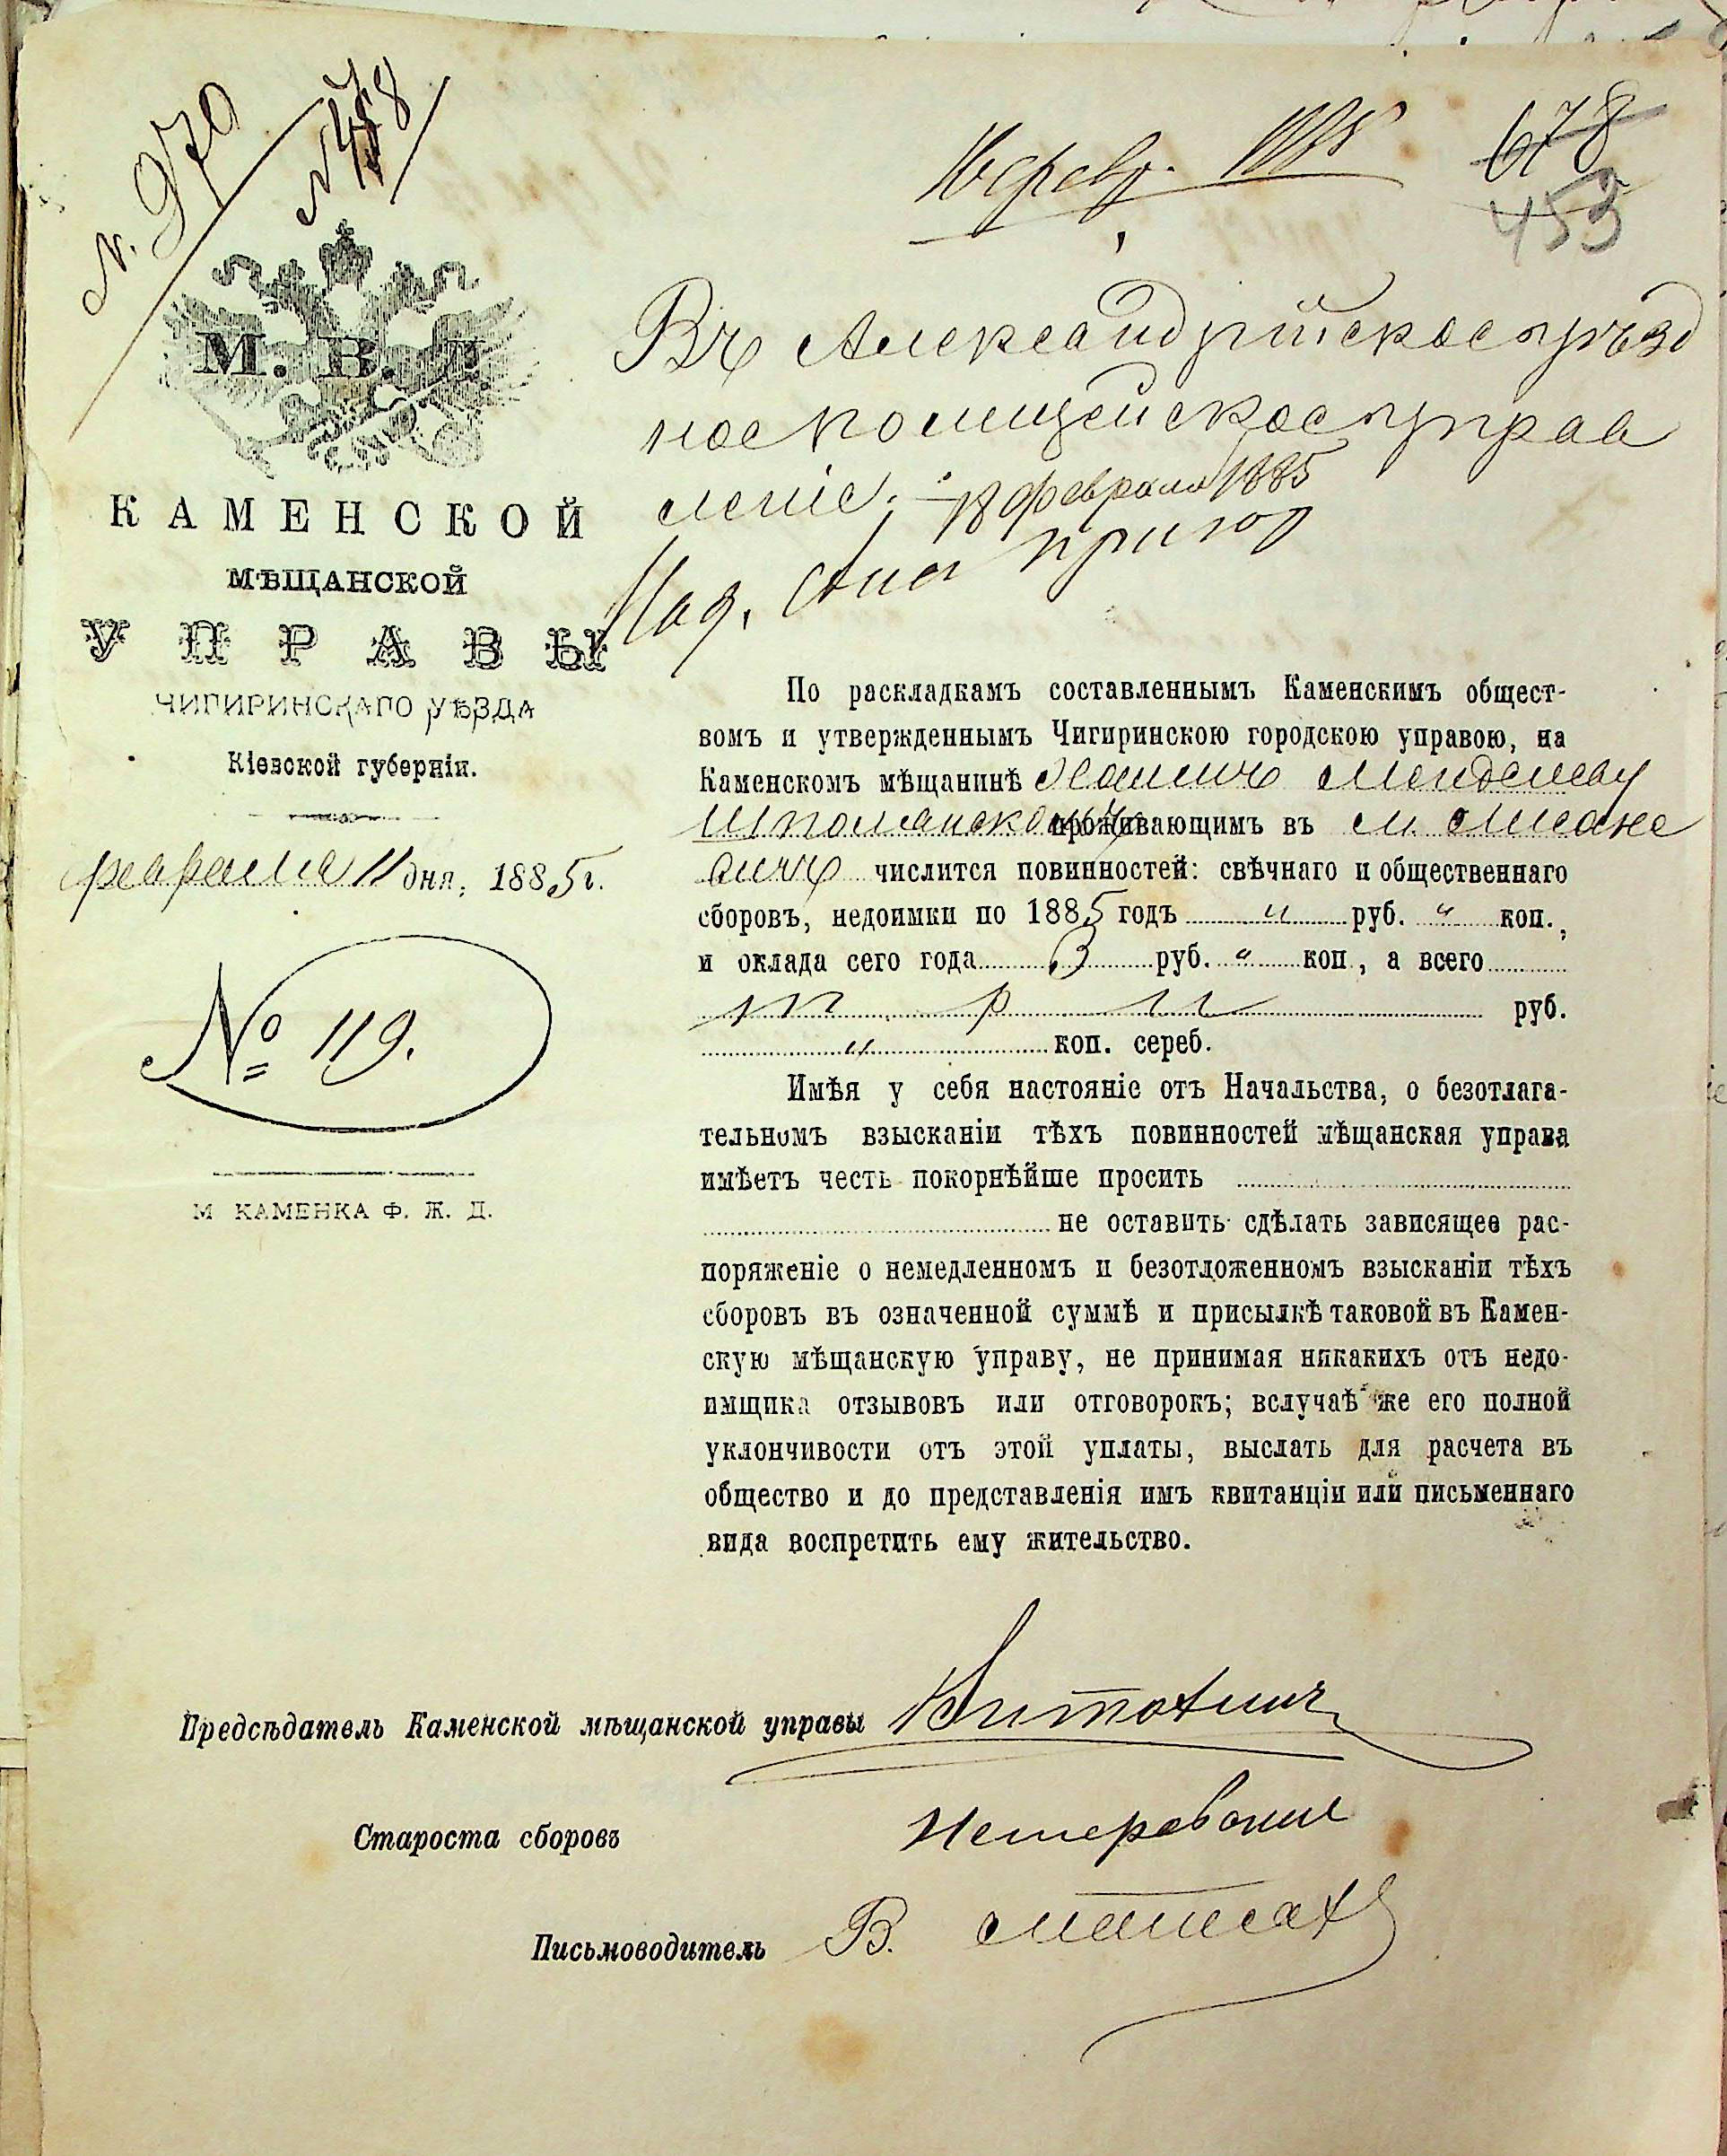 N. 970
N 458
16 февр. 1885
678
453
М. В. Д.
КАМЕНСКОЙ
МѢЩАНСКОЙ
УПРАВЫ
ЧИГИРИНСКАГО УѢЗДА
Кіевской губерніи.
февраля 11 дня, 1885 г.
№ 119.
М КАМЕНКА Ф. Ж. Д.
Въ Александрійское уѣзд
ное полицейское управ
леніе.
18 февраля 1885
По раскладкамъ составленнымъ Каменскимъ общест-
вомъ и утвержденнымъ Чигиринскою городскою управою, на
Каменскомъ мѣщанинѣ Менделеву
Шполянскому проживающимъ въ м.
числится повинностей: свѣчнаго и общественнаго
сборовъ, недоимки по 1885 годъ " руб. " коп.,
и оклада сего года 3 руб. " коп., а всего
три руб.
" коп. сереб.
Имѣя у себя настояніе отъ Начальства, о безотлага-
тельномъ взысканіи тѣхъ повинностей мѣщанская управа
имѣетъ честь покорнѣйше просить
не оставить сдѣлать зависящее рас-
поряженіе о немедленномъ и безотложенномъ взысканіи тѣхъ
сборовъ въ означенной суммѣ и присылкѣ таковой въ Камен-
скую мѣщанскую управу, не принимая никакихъ отъ недо-
имщика отзывовъ или отговорокъ; вслучаѣ же его полной
уклончивости отъ этой уплаты, выслать для расчета въ
общество и до представленія имъ квитанціи или письменнаго
вида воспретить ему жительство.
Предсѣдатель Каменской мѣщанской управы
Староста сборовъ
Письмоводитель В.